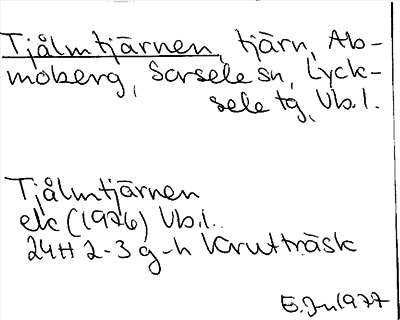 Tjålmtjärnen, tjärn, Ab-
moberg, Sorsele sn, Lyck-
sele tg, Vb.l.
Tjålmtjärnen
ek (1976) Vb.l.
24H 2-3 g-h Krutträsk
1977